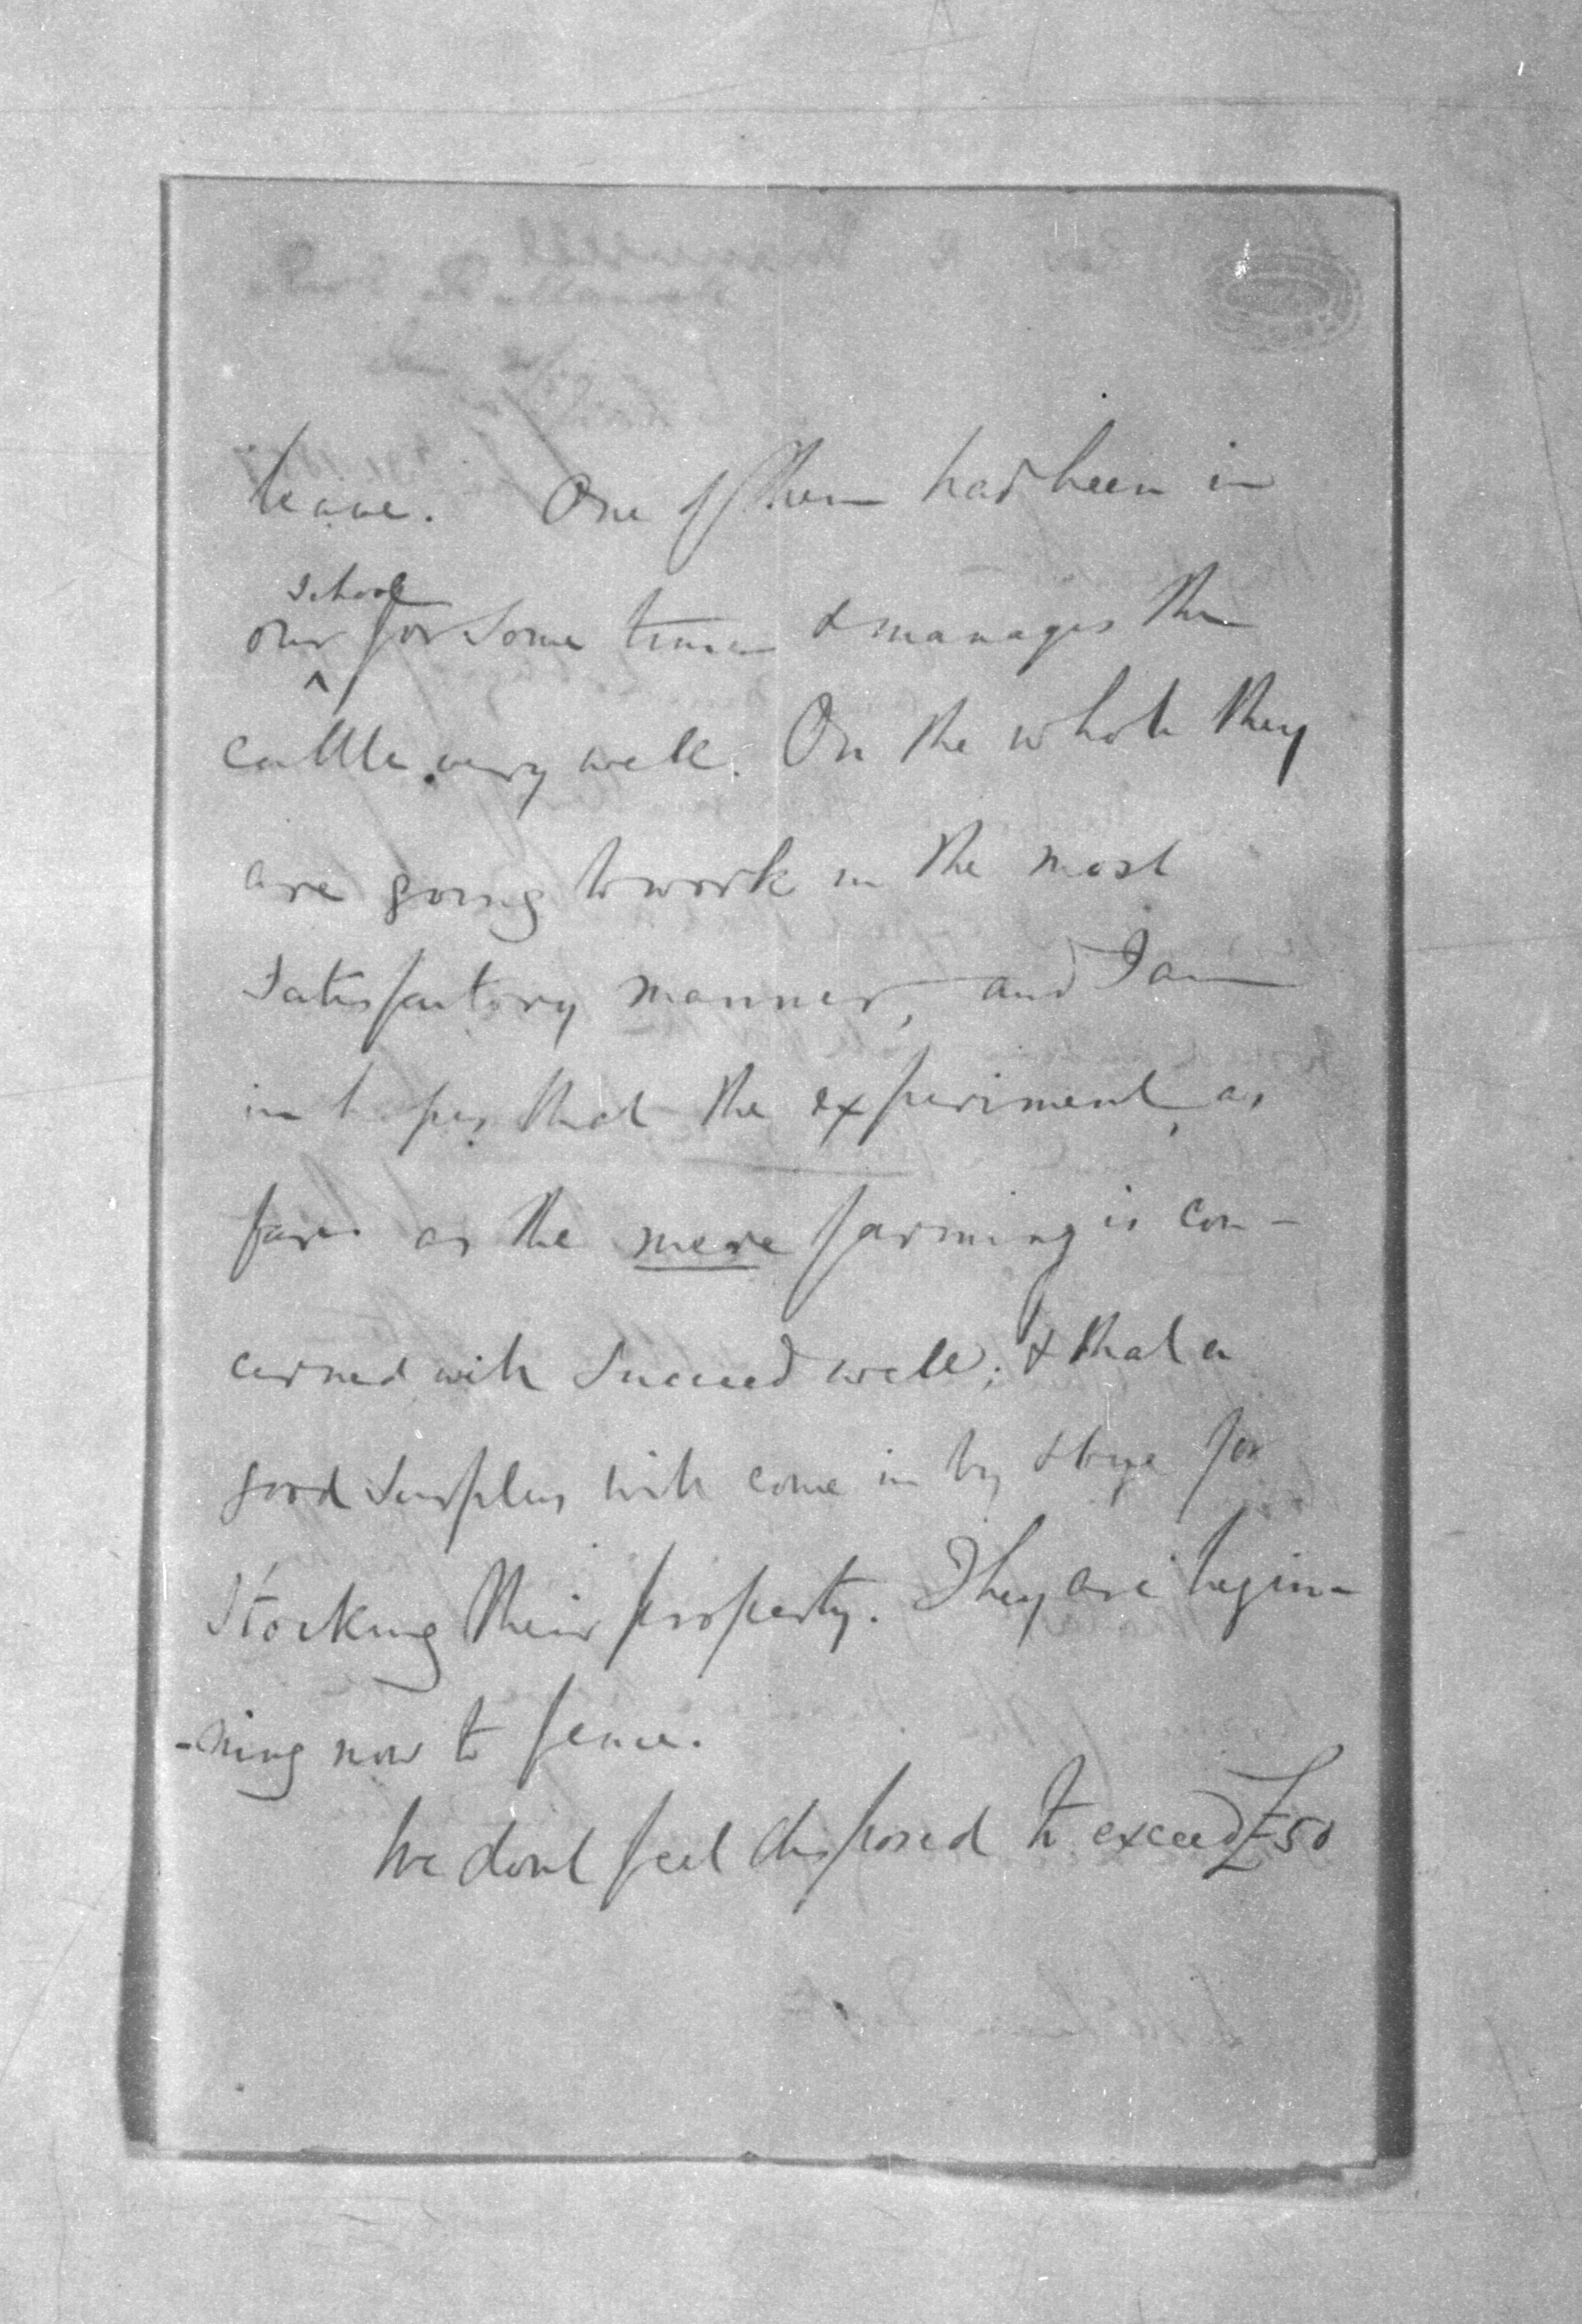 leave. One of them had been in
our school for some time & manages the
cattle very well. On the whole they
are going to work in the most
satisfactory manner, and I am
in hopes that the experiment, as
far as the mere farming is con-
cerned will succeed well; & that a
good surplus will come in by & bye for
stocking their property. They are begin-
-ning now to fence.
We dont feel disposed to exceed £50